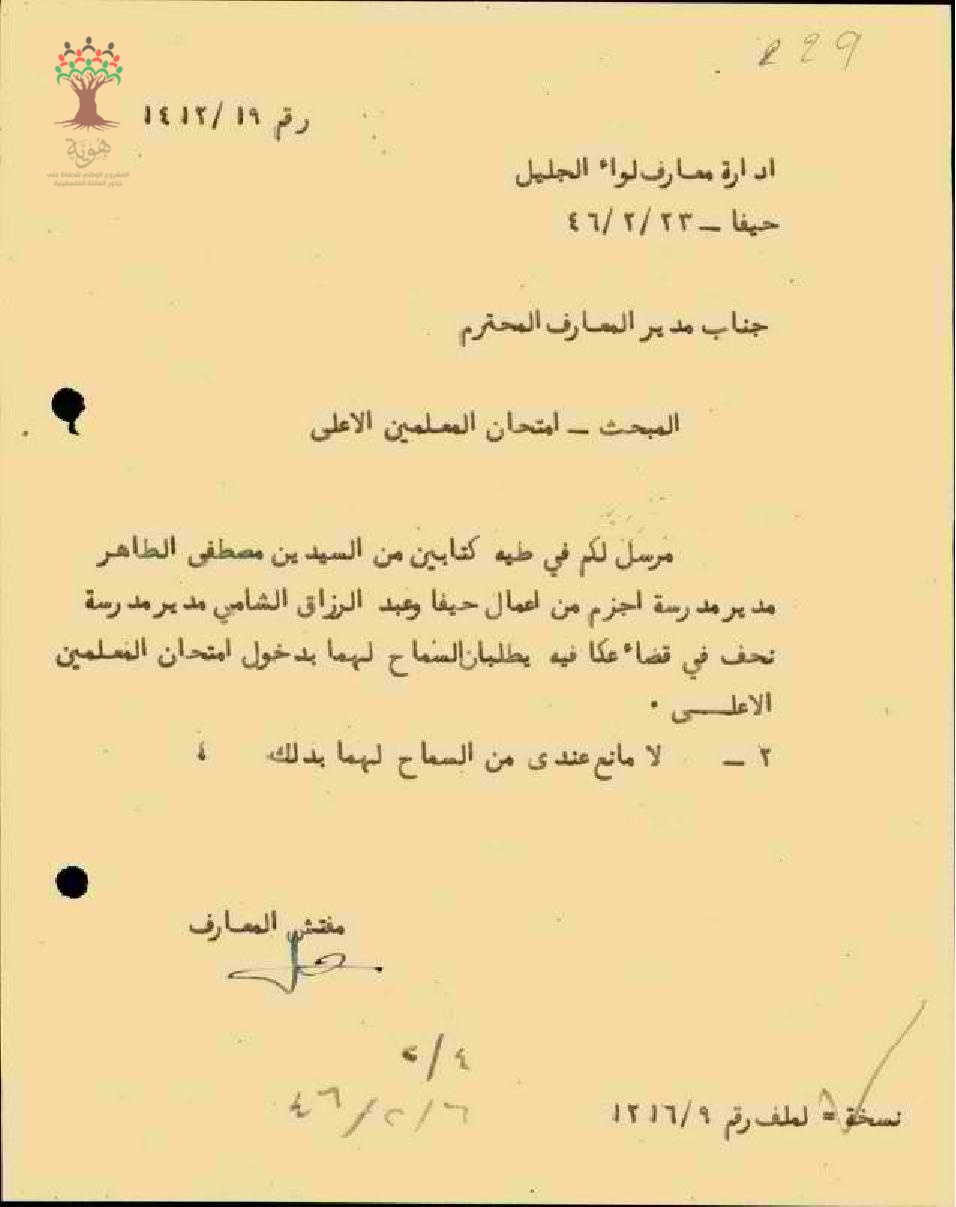 229
هوية
المشروع الوطني للحفاظ على
جذور العائلة الفلسطينية
رقم ١٤١٢/١٩
ادارة معارف لواء الجليل
حيفا – ٤٦/٢/٢٣
جناب مدير المعارف المحترم
المبحث – امتحان المعلمين الاعلى
مرسل لكم في طيه كتابين من السيدين مصطفى الطاهر
مدير مدرسة اجزم من اعمال حيفا وعبد الرزاق الشامي مدير مدرسة
نحف في قضاء عكا فيه يطلبان السماح لهما بدخول امتحان المعلمين
الاعلــــى ٠
٢ – لا مانع عندى من السماح لهما بدلك
مفتش المعارف
نسخة = لملف رقم ١٢١٦/٩